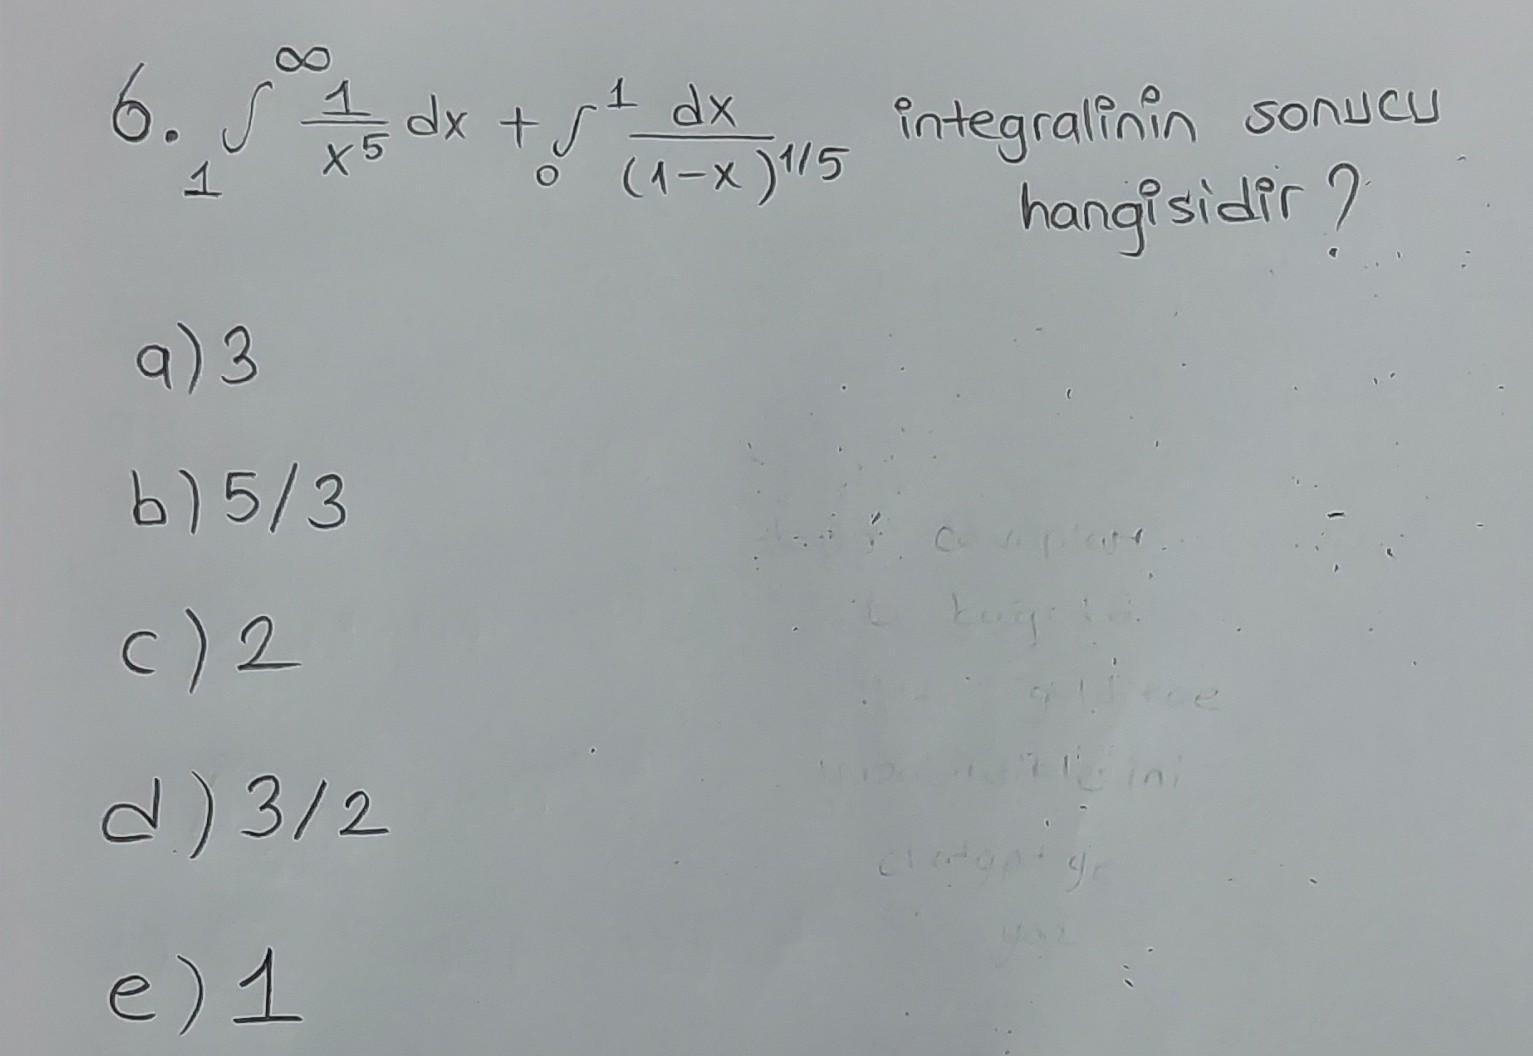 6. ₁∫^∞ 1/x⁵ dx + ₀∫¹ dx/(1-x)^1/5 integralinin sonucu
hangisidir?
a) 3
b) 5/3
c) 2
d) 3/2
e) 1